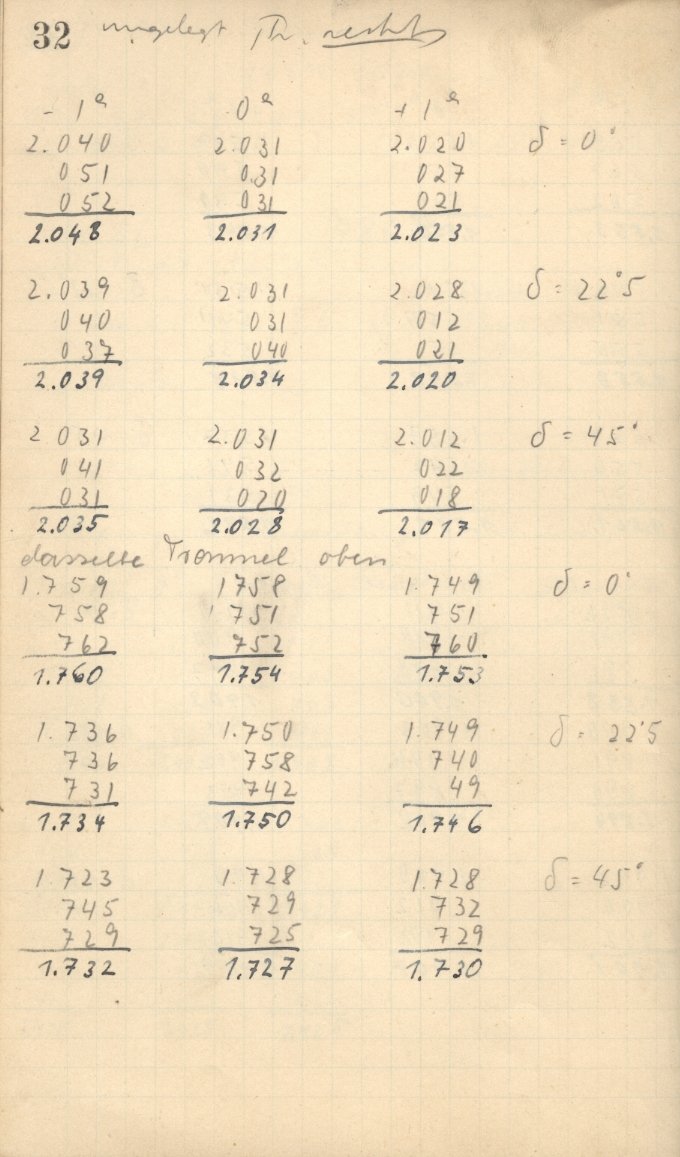 32 umgelegt Th. rechts
- 1ᵃ 0ᵃ + 1ᵃ
2.040 2.031 2.020 δ = 0°
051 031 027
052 031 021
2.048 2.031 2.023
2.039 2.031 2.028 δ = 22°5
040 031 012
037 040 021
2.039 2.034 2.020
2 031 2.031 2.012 δ = 45°
041 032 022
031 020 018
2.035 2.028 2.017
dasselbe Trommel oben
1.759 1758 1.749 δ = 0°
758 1751 751
762 752 760
1.760 1.754 1.753
1.736 1.750 1.749 δ = 22°5
736 758 740
731 742 49
1.734 1.750 1.746
1.723 1.728 1.728 δ = 45°
745 729 732
729 725 729
1.732 1.727 1.730